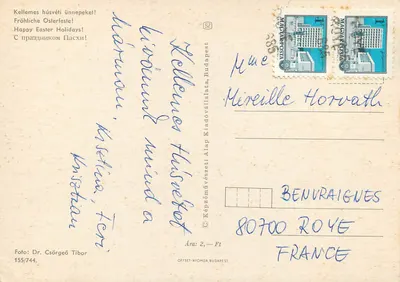 Kellemes húsvéti ünnepeket!
Fröhliche Osterfeste!
Happy Easter Holidays!
С праздником Пасхи!
Kellemes Húsvétot
kívánunk mind a
hárman.
Krisztina, Feri
Krisztián
Foto: Dr. Csörgeő Tibor
155/744.
© Képzőművészeti Alap Kiadóvállalata, Budapest
Ára: 2,— Ft
OFFSET-NYOMDA, BUDAPEST
Mme
Mireille Horvath
BENVRAIGNES
80700 ROYE
FRANCE